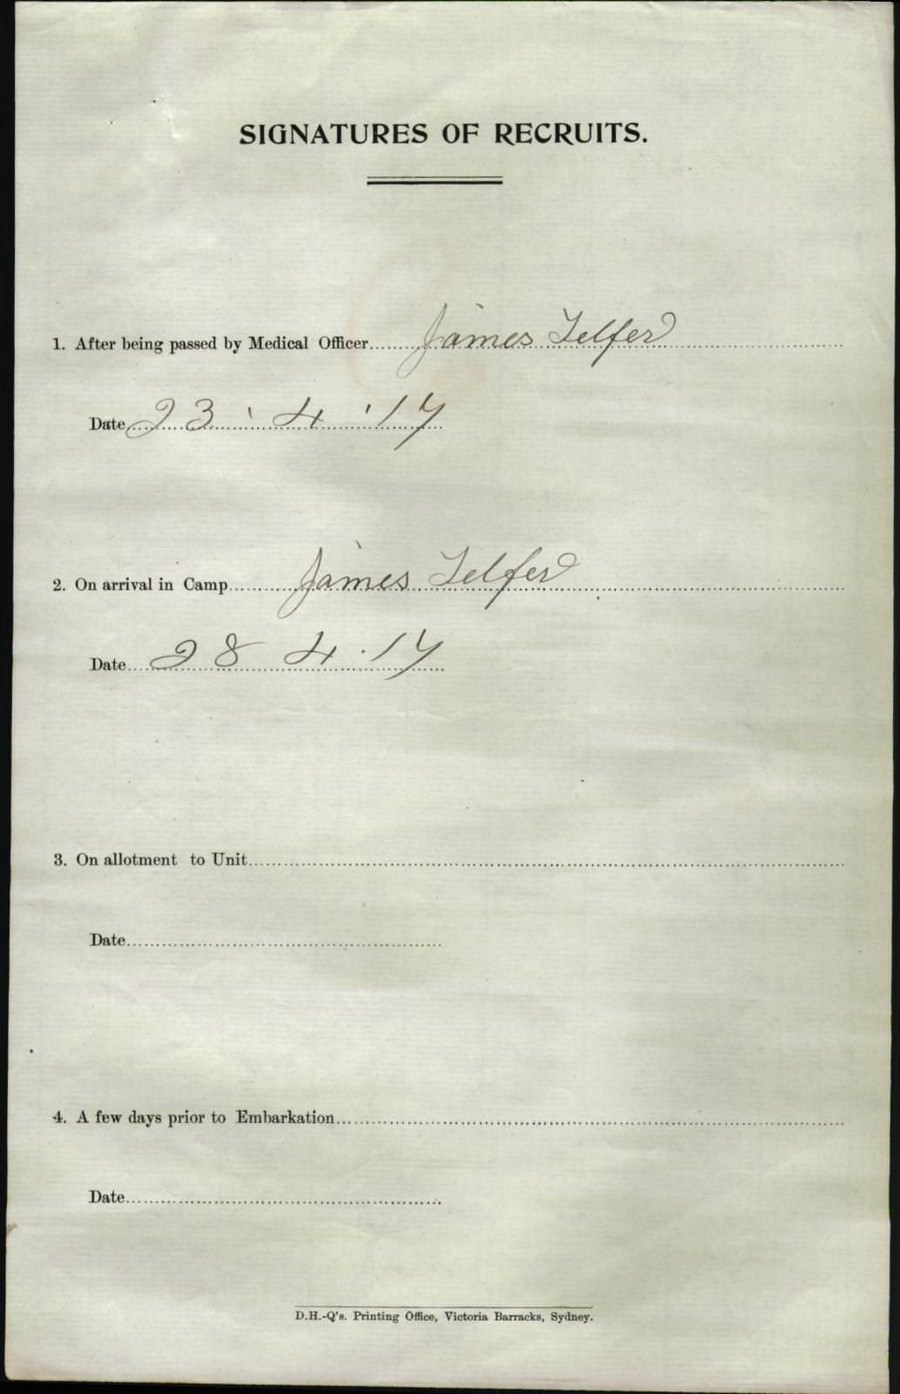 SIGNATURES OF RECRUITS.
1. After being passed by Medical Officer........James Telfer....................
Date 23 ' 4 ' 17
2. On arrival in Camp..........James Telfer..............................
Date... 28 4 . 17
3. On allotment to Unit........................................
Date........................................
4. A few days prior to Embarkation........................................
Date........................................
D.H.-Q's. Printing Office, Victoria Barracks, Sydney.